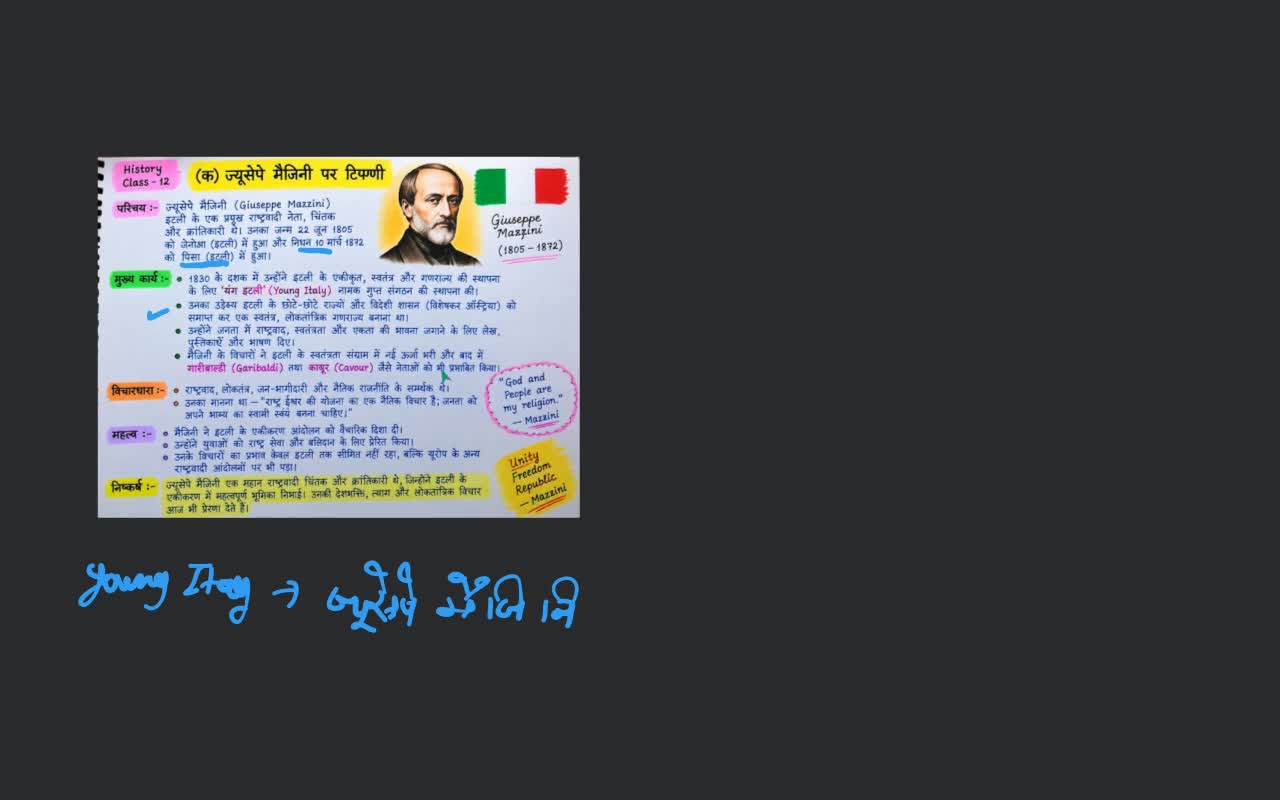 History
Class - 12
(क) ज्यूसेपे मैजिनी पर टिप्पणी
परिचय :-
ज्यूसेपे मैजिनी (Giuseppe Mazzini)
इटली के एक प्रमुख राष्ट्रवादी नेता, चिंतक
और क्रांतिकारी थे। उनका जन्म 22 जून 1805
को जेनोआ (इटली) में हुआ और निधन 10 मार्च 1872
को पिसा (इटली) में हुआ।
Giuseppe
Mazzini
(1805 – 1872)
मुख्य कार्य :-
• 1830 के दशक में उन्होंने इटली के एकीकृत, स्वतंत्र और गणराज्य की स्थापना
के लिए 'यंग इटली' (Young Italy) नामक गुप्त संगठन की स्थापना की।
• उनका उद्देश्य इटली के छोटे-छोटे राज्यों और विदेशी शासन (विशेषकर ऑस्ट्रिया) को
समाप्त कर एक स्वतंत्र, लोकतांत्रिक गणराज्य बनाना था।
• उन्होंने जनता में राष्ट्रवाद, स्वतंत्रता और एकता की भावना जगाने के लिए लेख,
पुस्तिकाएँ और भाषण दिए।
• मैजिनी के विचारों ने इटली के स्वतंत्रता संग्राम में नई ऊर्जा भरी और बाद में
गारीबाल्डी (Garibaldi) तथा कावूर (Cavour) जैसे नेताओं को भी प्रभावित किया।
विचारधारा :-
• राष्ट्रवाद, लोकतंत्र, जन-भागीदारी और नैतिक राजनीति के समर्थक थे।
• उनका मानना था – "राष्ट्र ईश्वर की योजना का एक नैतिक विचार है; जनता को
अपने भाग्य का स्वामी स्वयं बनना चाहिए।"
"God and
People are
my religion."
— Mazzini
महत्व :-
• मैजिनी ने इटली के एकीकरण आंदोलन को वैचारिक दिशा दी।
• उन्होंने युवाओं को राष्ट्र सेवा और बलिदान के लिए प्रेरित किया।
• उनके विचारों का प्रभाव केवल इटली तक सीमित नहीं रहा, बल्कि यूरोप के अन्य
राष्ट्रवादी आंदोलनों पर भी पड़ा।
निष्कर्ष :-
ज्यूसेपे मैजिनी एक महान राष्ट्रवादी चिंतक और क्रांतिकारी थे, जिन्होंने इटली के
एकीकरण में महत्वपूर्ण भूमिका निभाई। उनकी देशभक्ति, त्याग और लोकतांत्रिक विचार
आज भी प्रेरणा देते हैं।
Unity
Freedom
Republic
— Mazzini
Young Italy → ज्यूसेपे मैजिनि